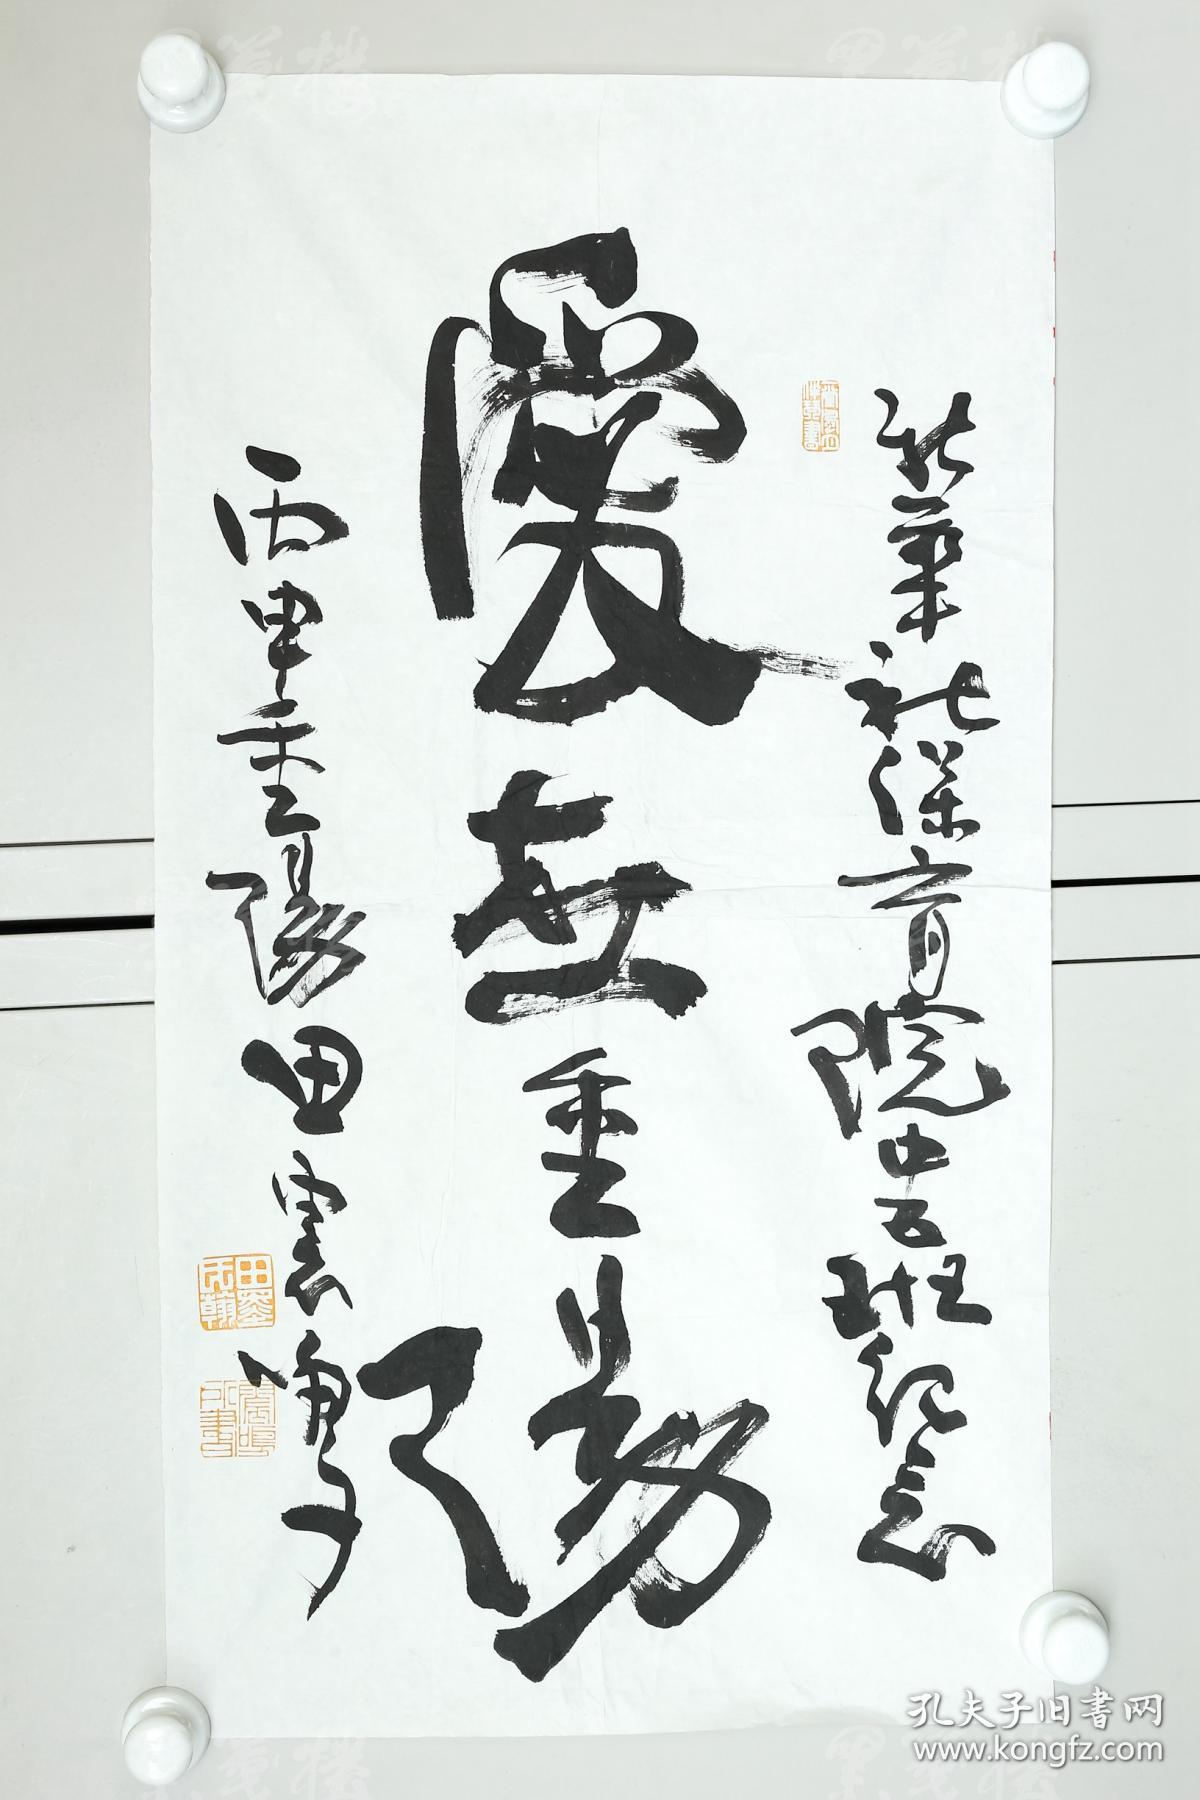 新華社保育院中五班紀念
愛無重陽
丙申重陽田裏鳴
孔夫子旧书网
www.kongfz.com